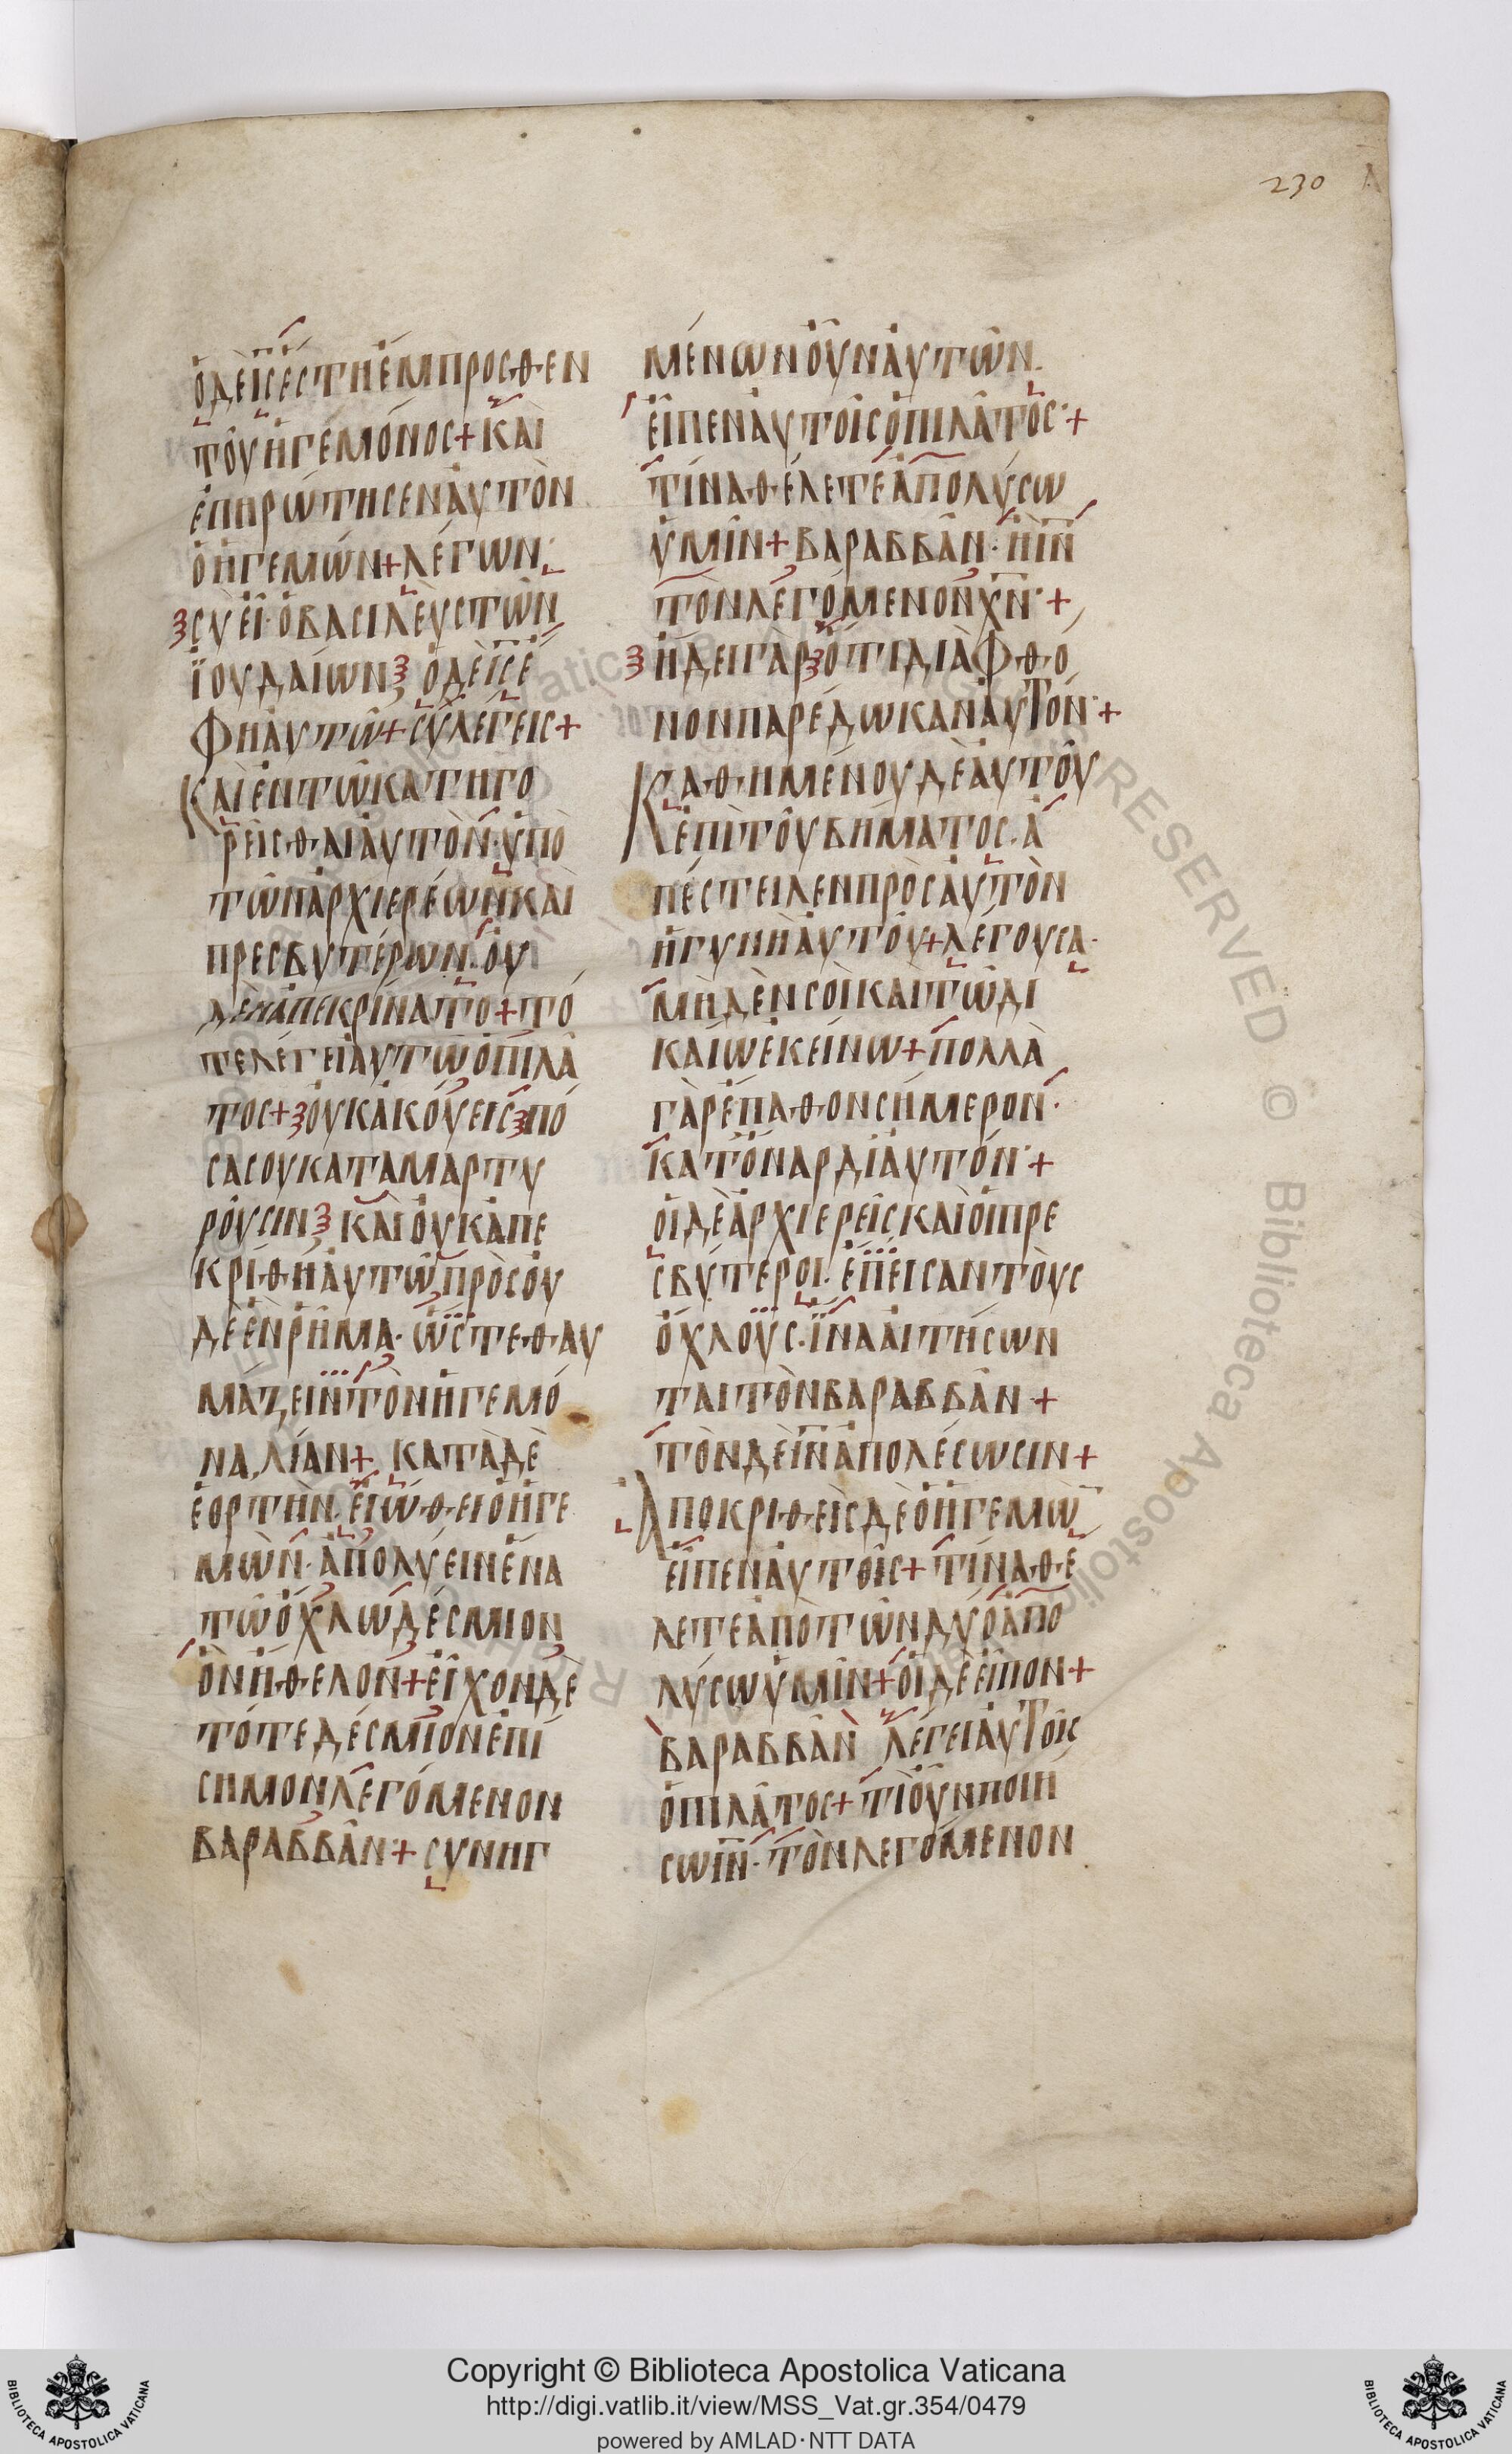 230
ὁ δὲ ῙC̄ ἔστη ἔμπροσθεν
τοῦ ἡγεμόνος + καὶ
ἐπηρώτησεν αὐτὸν
ὁ ἡγεμών + λέγων·
σὺ εἶ ὁ βασιλεὺς τῶν
ἰουδαίων ὁ δὲ ῙC̄ ἔ
φη αὐτῶ + σὺ λέγεις +
Καὶ ἐν τῶ κατηγο
ρεῖσθαι αὐτὸν· ὑπὸ
τῶν ἀρχιερέων καὶ
πρεσβυτέρων· οὐ
δὲν ἀπεκρίνατο + τό
τε λέγει αὐτῶ ὁ πιλᾶ
τος + οὐκ ἀκούεις πό
σα σου καταμαρτυ
ροῦσιν καὶ οὐκ ἀπε
κρίθη αὐτῶ πρὸς οὐ
δὲ ἓν ῥῆμα· ὥστε θαυ
μάζειν τὸν ἡγεμό
να, λίαν + κατὰ δὲ
ἑορτὴν εἰώθει ὁ ἡγε
μὼν· ἀπολύειν ἕνα
τῶ ὄχλω δέσμιον
ὃν ἤθελον + εἶχον δὲ
τότε δέσμιον ἐπί
σημον λεγόμενον
βαραββᾶν + συνηγ
μένων οὖν αὐτῶν
εἶπεν αὐτοῖς ὁ πιλᾶτος· +
τίνα θέλετε ἀπολύσω
ὑμῖν + βαραββᾶν· ἢ ῙΝ̄
τὸν λεγόμενον Χ̄Ν̄· +
ἤδει γὰρ ὅτι διὰ φθό
νον παρέδωκαν αὐτόν· +
Καθημένου δὲ αὐτοῦ
ἐπὶ τοῦ βήματος· ἀ
πέστειλεν πρὸς αὐτὸν
ἡ γυνὴ αὐτοῦ + λέγουσα·
μηδὲν σοὶ καὶ τῶ δι
καίω ἐκείνω + πολλὰ
γὰρ ἔπαθον σήμερον·
κατ ὄναρ δι αὐτόν· +
οἱ δὲ ἀρχιερεῖς καὶ οἱ πρε
σβύτεροι· ἔπεισαν τοὺς
ὄχλους· ἵνα αἰτήσων
ται τὸν βαραββᾶν +
τὸν δὲ ῙΝ̄ ἀπολέσωσιν +
Ἀποκριθεὶς δὲ ὁ ἡγεμὼ̄
εἶπεν αὐτοῖς + τίνα θέ
λετε ἀπὸ τῶν δύο ἀπο
λύσω ὑμῖν + οἱ δὲ εἶπον +
βαραββᾶν λέγει αὐτοῖς
ὁ πιλᾶτος + τί οὖν ποιή
σω ῙΝ̄· τὸν λεγόμενον
Copyright © Biblioteca Apostolica Vaticana
http://digi.vatlib.it/view/MSS_Vat.gr.354/0479
powered by AMLAD·NTT DATA
BIBLIOTECA APOSTOLICA VATICANA
BIBLIOTECA APOSTOLICA VATICANA